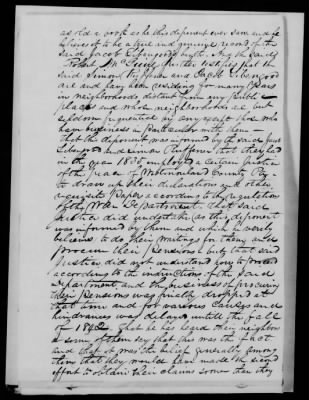 as old a book as this deponent ever saw and
believes it to be a true and genuine record of the
said Jacob Lybengood's birth. And the said
Robert McCreery further testifies that the
said Simon Truffner and Jacob Libengood
are and have been residing for many years
in neighborhoods distant from any public
places and whose neighborhoods are but
seldom frequented by any except those who
have business in particular with them —
that this deponent was informed by the said Jacob
Libengood and Simon Truffner that they had
in the year 1835 employed a certain Justice
of the peace of Westmoreland County Pa
to draw up their declaration and other
requisite Papers according to the regulation
of the War Department. That said
Justice did undertake as this deponent
was informed by them and which he verily
believes to do their writings for them and
procure their Pensions but that said
Justice did not understand how to proceed
according to the instructions of the said
Department and the business of procuring
their Pensions was finally dropped at
that time and for various causes and
hindrances was delayed until the fall
of 1842. That he has heard their neighbors
or some of them say that this was the fact
and that it was the belief generally among
them that they would have made the second
effort to obtain their claims sooner than they